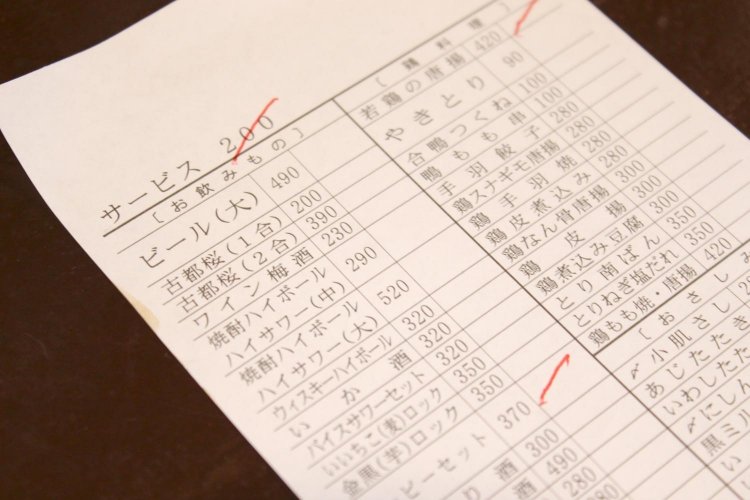 サービス 200
〔お飲みもの〕
ビール(大) 490
古都桜(1合) 200
古都桜(2合) 390
ワイン梅酒 230
焼酎ハイボール
ハイサワー(中) 290
焼酎ハイボール
ハイサワー(大) 520
ウィスキーハイボール 320
いか酒 320
バイスサワーセット 320
いいちこ(麦)ロック 350
金黒(芋)ロック 350
ビーセット 370
り酒 300
酒 490
280
〔鶏料理〕
若鶏の唐揚 420
やきとり 90
合鴨つくね 100
鴨もも串 100
手羽餃子 280
鶏スナギモ唐揚 280
鶏手羽焼 280
鶏皮煮込み 280
鶏なん骨唐揚 300
鶏皮揚 300
鶏煮込み豆腐 300
とり南ばん 350
とりねぎ塩だれ 350
鶏もも焼・唐揚 420
〔おさしみ
〆小肌さし
あじたたき
いわしたた
〆にしん
黒ミル